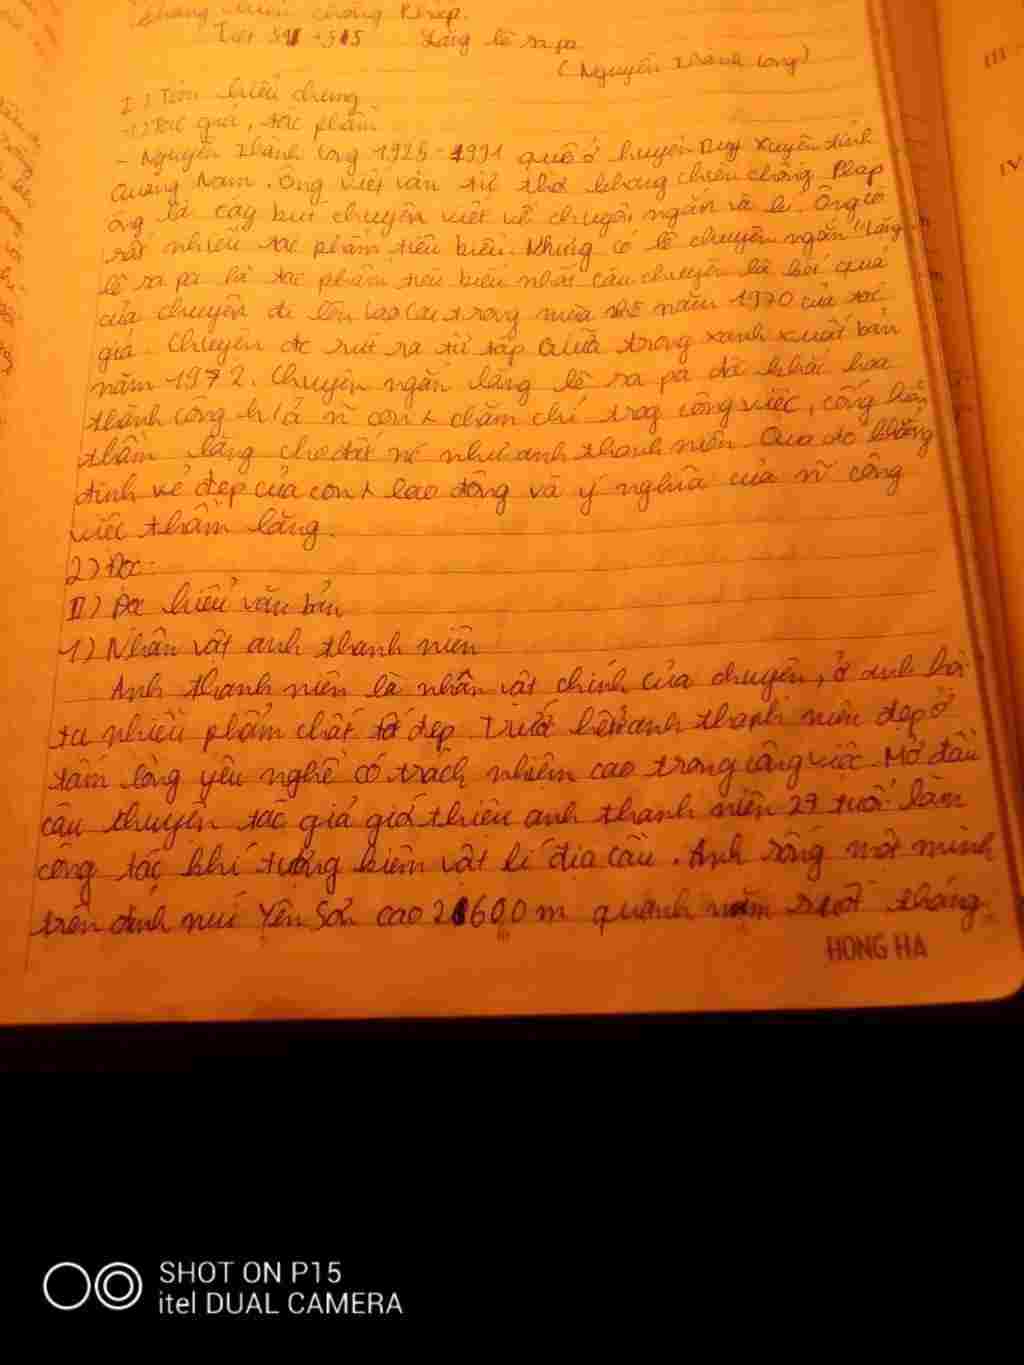 kháng chiến chống Pháp.
Tiết Lặng lẽ sa pa
(Nguyễn Thành Long)
I) Tìm hiểu chung
1) Tác giả, tác phẩm
- Nguyễn Thành Long 1925-1991 quê ở huyện Duy Xuyên tỉnh
Quảng Nam. Ông viết văn từ thời kháng chiến chống Pháp
ông là cây bút chuyên viết về chuyện ngắn và kí. Ông có
rất nhiều tác phẩm tiêu biểu. Nhưng có lẽ chuyện ngắn "Lặng
lẽ sa pa là tác phẩm tiêu biểu nhất câu chuyện là kết quả
của chuyến đi lên Lao Cai trong mùa hè năm 1970 của tác
giả. Chuyện đc rút ra từ tập Giữa trong xanh xuất bản
năm 1972. Chuyện ngắn lặng lẽ sa pa đã khắc hoạ
thành công h/ả n~ con chăm chỉ trog công việc, cống hiến
thầm lặng cho đất nc như anh thanh niên. Qua đó khẳng
định vẻ đẹp của con lao động và ý nghĩa của n~ công
việc thầm lặng.
2) Đọc:
II) Đọc hiểu văn bản
1) Nhân vật anh thanh niên
Anh thanh niên là nhân vật chính của chuyện, ở anh hội
tụ nhiều phẩm chất tốt đẹp. Trước hết anh thanh niên đẹp ở
tấm lòng yêu nghề có trách nhiệm cao trong công việc. Mở đầu
câu chuyện tác giả giới thiệu anh thanh niên 27 tuổi làm
công tác khí tượng kiêm vật lí địa cầu. Anh sống một mình
trên đỉnh núi Yên Sơn cao 2600m quanh năm suốt tháng
HONG HA
SHOT ON P15
itel DUAL CAMERA